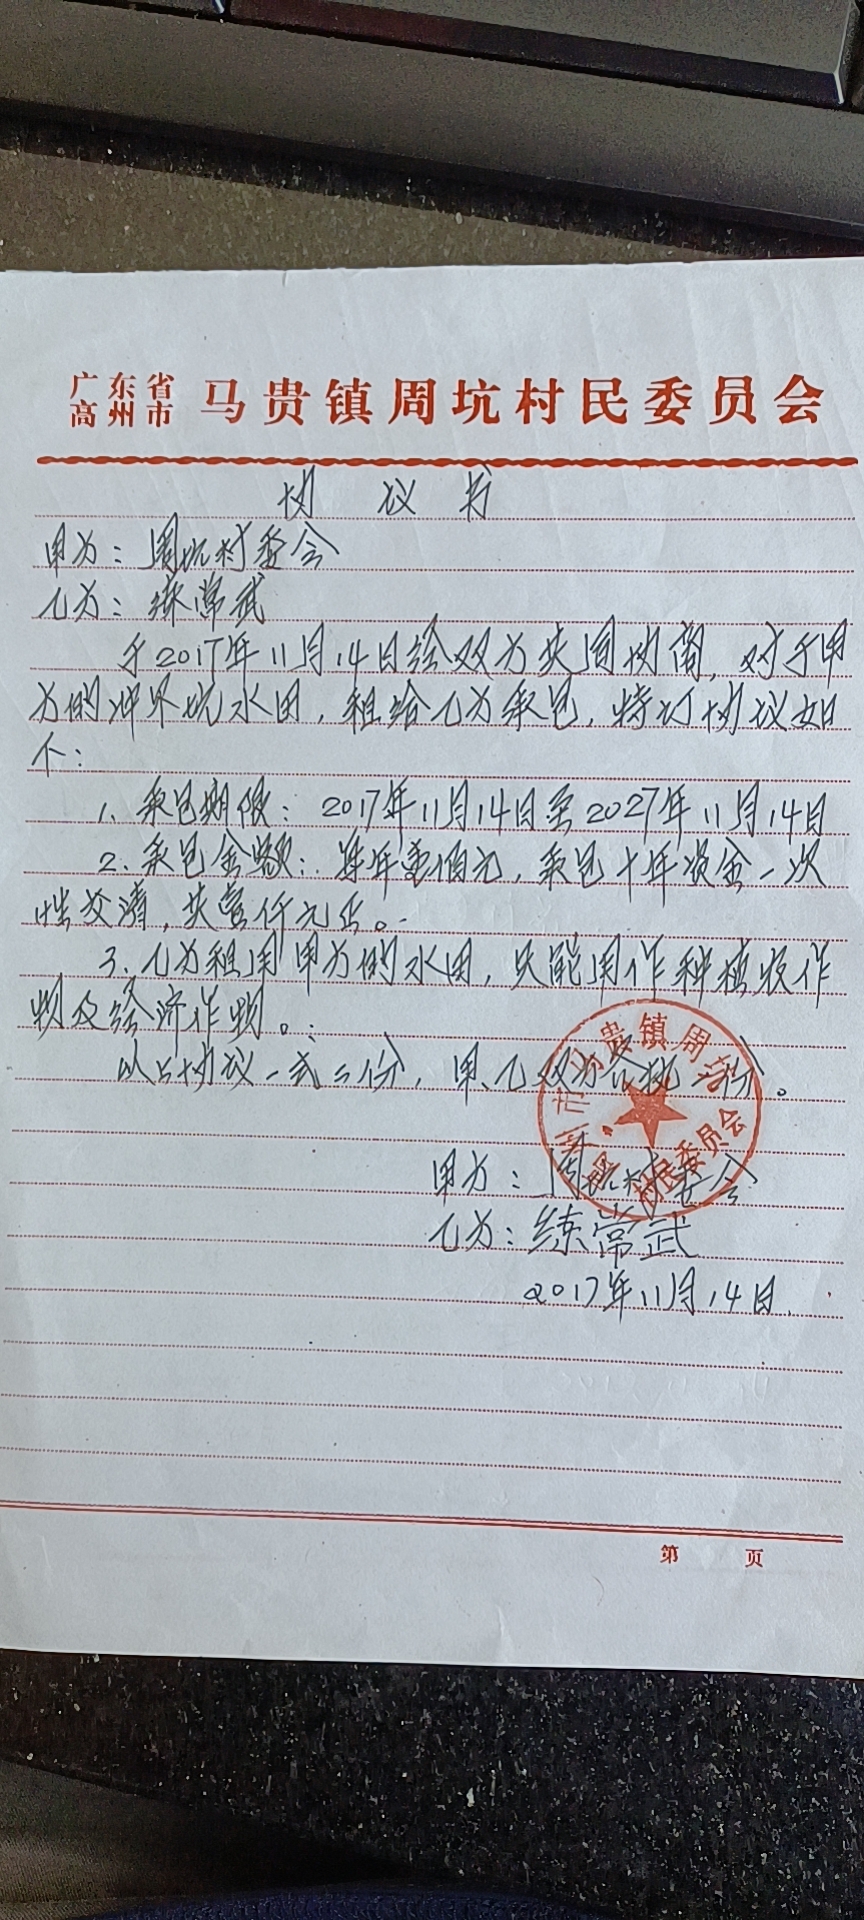 广东省
高州市 马贵镇周坑村民委员会
协议书
甲方：周坑村委会
乙方：练常武
于2017年11月14日经双方共同协商，对于甲
方的冲尽坑水田，租给乙方承包，特订协议如
下：
1、承包期限：2017年11月14日至2027年11月14日
2、承包金额：每年壹佰元，承包十年资金一次
性交清，共壹仟元正。
3、乙方租用甲方的水田，只能用作种植农作
物及经济作物。
以上协议一式二份，甲、乙双方各执一份。
贵镇周
村民委员会
甲方：周坑村委会
乙方：练常武
2017年11月14日
第 页